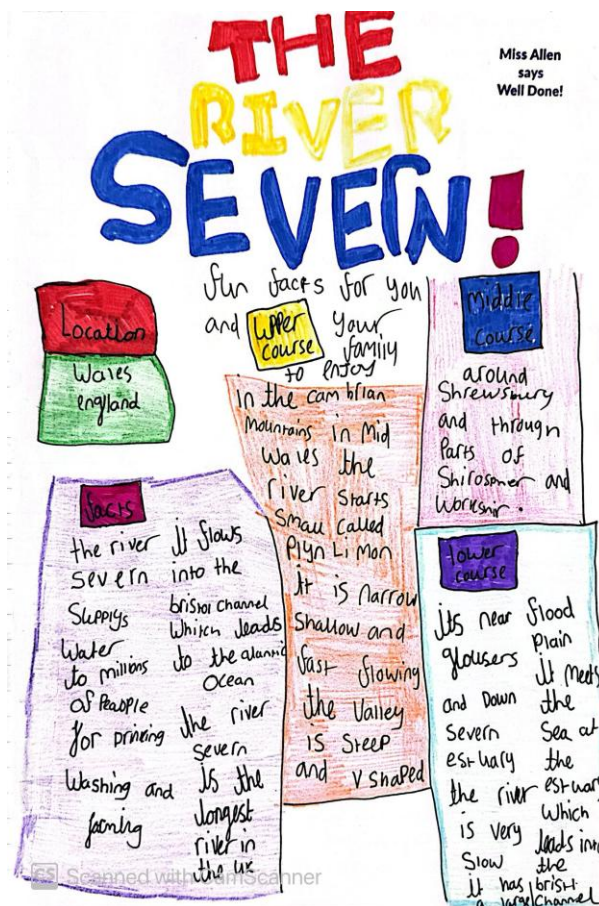 THE
RIVER
SEVERN!
Miss Allen
says
Well Done!
fun facts for you
and your
family
to enjoy
Location
Wales
england
Upper
course
in the cambrian
Mountains in Mid
Wales the
river starts
Small called
Plyn Li mon
it is narrow
Shallow and
fast flowing
the Valley
is steep
and V shaped
Middle
course
around
Shrewsbury
and through
Parts of
and
facts
the river
severn
Supplys
Water
to millions
of Peaople
for prinking
Washing and
farming
it flows
into the
bristol channel
Which leads
to the alantic
Ocean
the river
severn
is the
longest
river in
the uk
lower
course
its near
glousers
and Down
severn
estuary
the river
is very
Slow
it has
a large
flood
Plain
it meets
the
Sea at
the
estuary
Which
leads into
the
Channel
CS Scanned with CamScanner